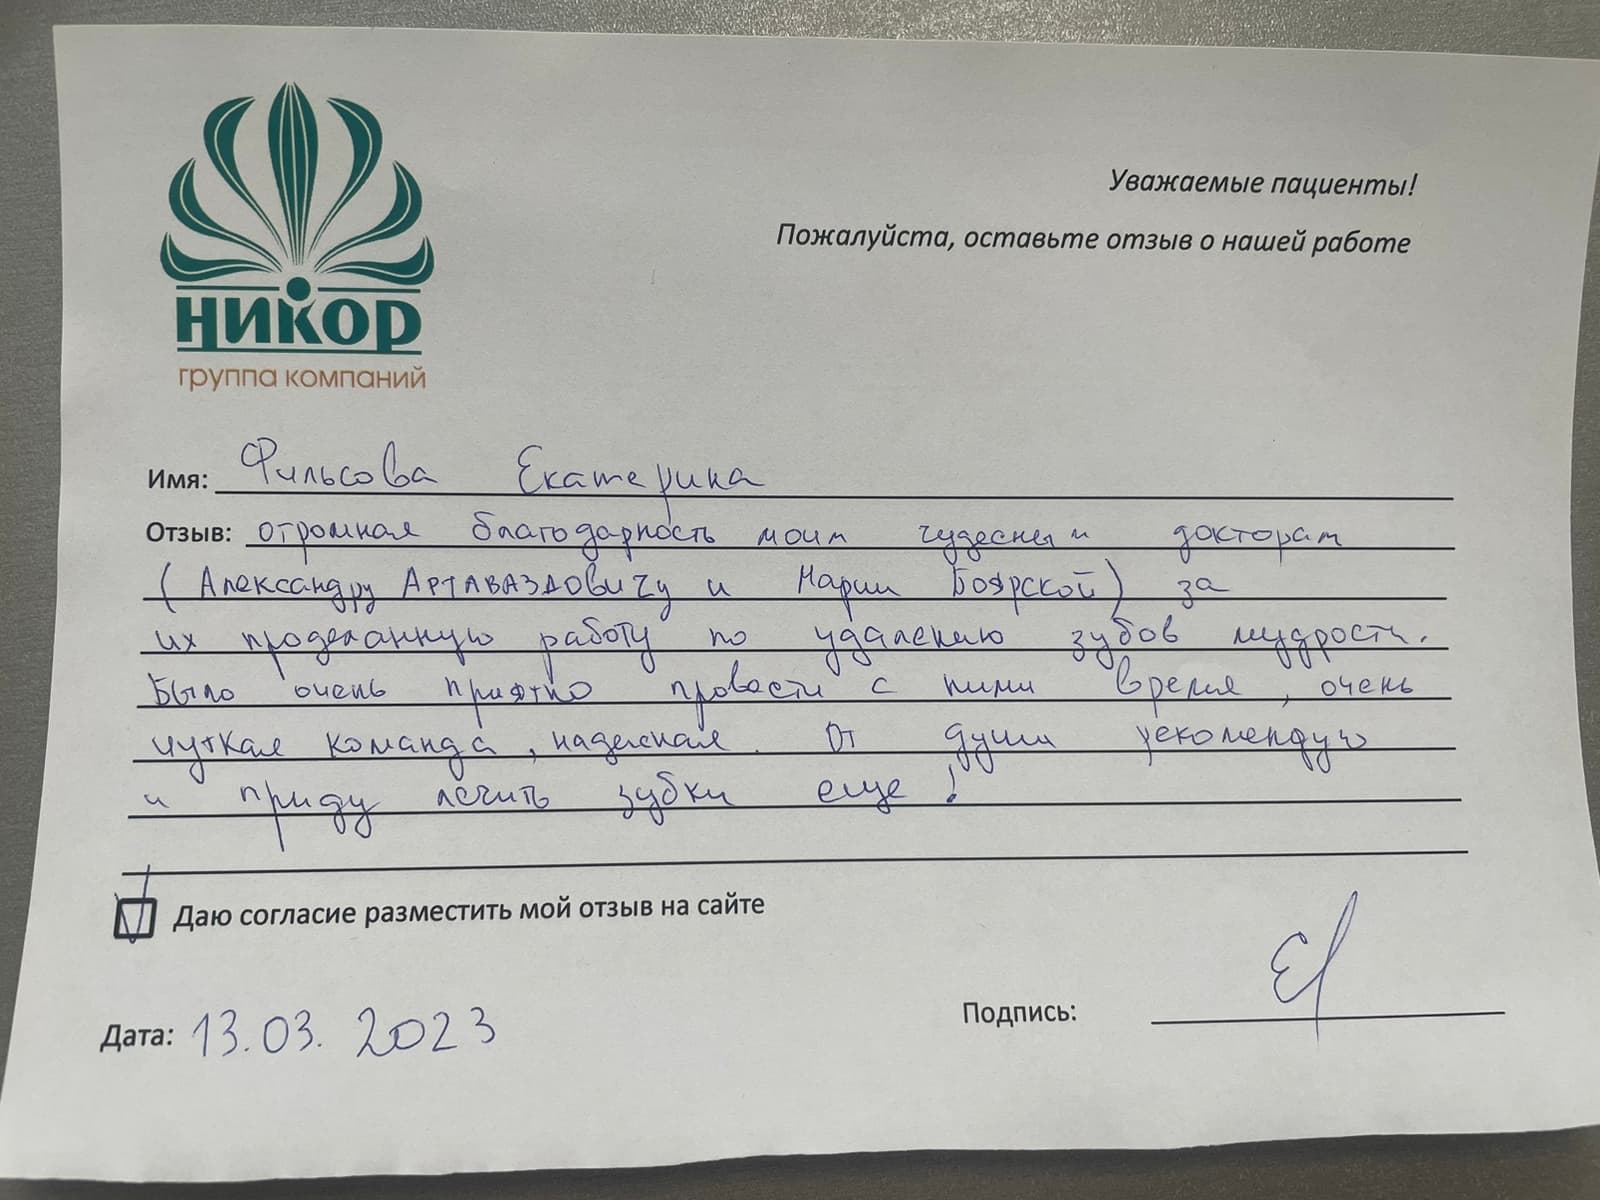 Уважаемые пациенты!
Пожалуйста, оставьте отзыв о нашей работе
НИКОР
группа компаний
Имя: Фильсова Екатерина
Отзыв: огромная благодарность моим чудесным докторам
(Александру Артаваздовичу и Марии Боярской) за
их проделанную работу по удалению зубов мудрости.
Было очень приятно провести с ними время, очень
чуткая команда, надежная. От души рекомендую
и приду лечить зубки еще!
Даю согласие разместить мой отзыв на сайте
Дата: 13.03.2023
Подпись: